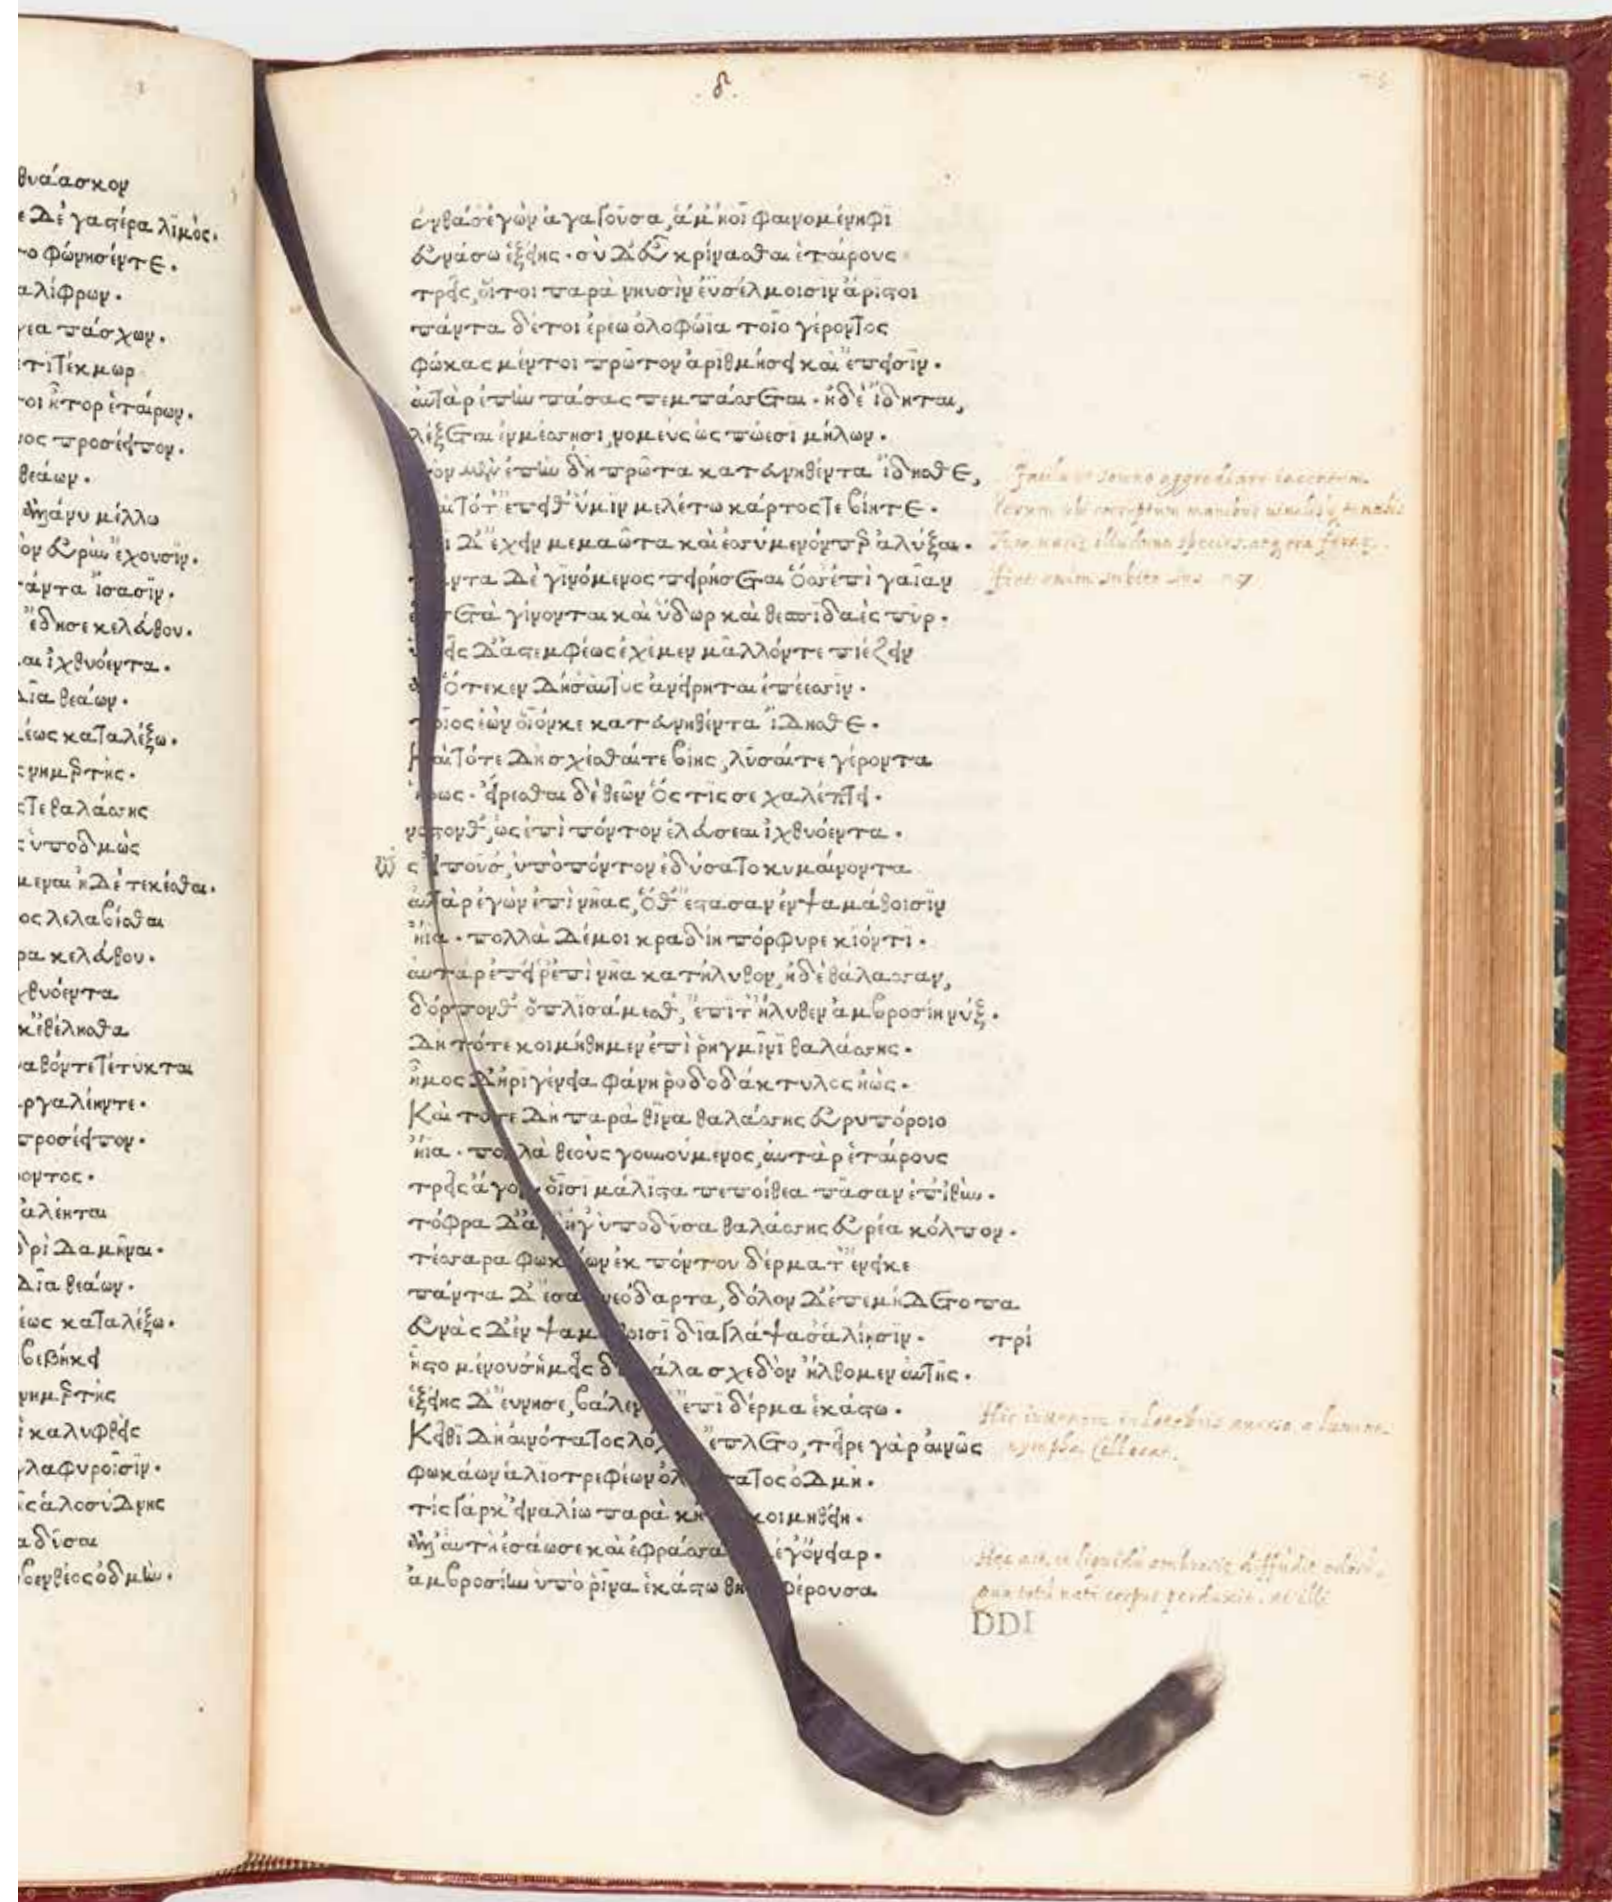 θυάασκον
ε Δὲ γαστέρα λιμός.
ο φώνησέντε.
αλίφρων.
γεα πάσχων.
τι τέκμωρ
οι ἦτορ ἑταίρων.
ος προσέειπον.
θεάων.
ἀθανάτους ἔχουσιν.
άντα ἴσασιν.
ἔδησε κελεύθου.
αι ἰχθυόεντα.
δῖα θεάων.
έως καταλέξω.
νημερτής.
τε θαλάσσης
ὑποδμώς
μεναι ἠΔὲ τεκέσθαι.
ος λελαβέσθαι
ρα κελεύθου.
χθυόεντα
κ' ἐθέλησθα
αθόντε τέτυκται
ργαλέηντε.
προσέειπον.
οντος.
αλέηται
δρὶ Δαμῆναι.
Δῖα θεάων.
έως καταλέξω.
βεβήκει
νημερτὴς
καλυφθεὶς
γλαφυροῖσιν.
ς ἁλοσύΔνης
αδῦσαι
βενθέος ὀδμήν.
.δ.
ἔνθα σ' ἐγὼν ἀγαγοῦσα, ἅμ' ἠοῖ φαινομένηφι
εὐνάσω ἑξείης. σὺ Δ' εὖ κρίνασθαι ἑταίρους
τρεῖς, οἵ τοι παρὰ νηυσὶν ἐυσέλμοισιν ἄριστοι
πάντα δέ τοι ἐρέω ὀλοφώϊα τοῖο γέροντος
φώκας μέν τοι πρῶτον ἀριθμήσει καὶ ἔπεισιν.
αὐτὰρ ἐπὴν πάσας πεμπάσσεται. ἠδὲ ἴδηται,
λέξεται ἐν μέσσησι, νομεὺς ὣς πώεσι μήλων.
τὸν μὲν ἐπὴν δὴ πρῶτα κατευνηθέντα ἴδησθε,
καὶ τότ' ἔπειθ' ὑμῖν μελέτω κάρτος τε βίη τε.
αὖθι Δ' ἔχειν μεμαῶτα καὶ ἐσσύμενόν περ ἀλύξαι.
πάντα Δὲ γινόμενος πειρήσεται ὅσσ' ἐπὶ γαῖαν
ἑρπετὰ γίνονται καὶ ὕδωρ καὶ θεσπιδαὲς πῦρ.
ὑμεῖς Δ' ἀστεμφέως ἐχέμεν μᾶλλόν τε πιέζειν
ἀλλ' ὅτε κεν Δή σ' αὐτὸς ἀνείρηται ἐπέεσσιν.
τοῖος ἐὼν οἷόν κε κατευνηθέντα ἴΔησθε.
Καὶ τότε Δὴ σχέσθαί τε βίης, λῦσαί τε γέροντα
ἥρως. εἴρεσθαι δὲ θεῶν ὅς τίς σε χαλέπτει.
νόστον θ', ὡς ἐπὶ πόντον ἐλεύσεαι ἰχθυόεντα.
ὥς εἰποῦσ', ὑπὸ πόντον ἐδύσατο κυμαίνοντα
αὐτὰρ ἐγὼν ἐπὶ νῆας, ὅθ' ἕστασαν ἐν ψαμάθοισιν
ἤϊα. πολλὰ Δέ μοι κραδίη πόρφυρε κιόντι.
αὐτὰρ ἐπεί ῥ' ἐπὶ νῆα κατήλυθον, ἠδὲ θάλασσαν,
δόρπον θ' ὁπλισάμεσθ', ἐπί τ' ἤλυθεν ἀμβροσίη νύξ.
Δὴ τότε κοιμήθημεν ἐπὶ ῥηγμῖνι θαλάσσης.
ἦμος Δ' ἠριγένεια φάνη ῥοδοδάκτυλος ἠώς.
Καὶ τότε Δὴ παρὰ θῖνα θαλάσσης εὐρυπόροιο
ἤϊα. πολλὰ θεοὺς γουνούμενος, αὐτὰρ ἑταίρους
τρεῖς ἄγον, οἷσι μάλιστα πεποίθεα πᾶσαν ἐπ' ἰθύν.
τόφρα Δ' ἄρ' ἥγ' ὑποδῦσα θαλάσσης εὐρέα κόλπον.
τέσσαρα φωκάων ἐκ πόντου δέρματ' ἔνεικε
πάντα Δ' ἔσαν νεόδαρτα, δόλον Δ' ἐπεμήΔετο πα
εὐνὰς Δ' ἐν ψαμάθοισι διαγλάψασ' ἁλίῃσιν. τρί
ἧστο μένουσ' ἡμεῖς δὲ μάλα σχεδὸν ἤλθομεν αὐτῆς.
ἑξείης Δ' εὔνησε, βάλεν Δ' ἐπὶ δέρμα ἑκάστω.
Κεῖθι Δὴ αἰνότατος λόχος ἔπλετο, τεῖρε γὰρ αἰνῶς
φωκάων ἁλιοτρεφέων ὀλοώτατος ὀΔμή.
τίς γάρ κ' εἰναλίω παρὰ κήτεϊ κοιμηθείη.
ἀλλ' αὐτὴ ἐσάωσε καὶ ἐφράσατο μέγ' ὄνειαρ.
ἀμβροσίην ὑπὸ ῥῖνα ἑκάστω θῆκε φέρουσα
DDI
Facile ut somno aggrediare iacentem.
Verum ubi correptum manibus vinclisq; tenebis
Tum variae illudent species atq; ora ferarum.
fiet enim subito sus
Hic iuvenem in latebris aversum a lumine
nympha Collocat.
Haec ait, et liquidum ambrosiae diffudit odorem
quo totum nati corpus perduxit. at illi